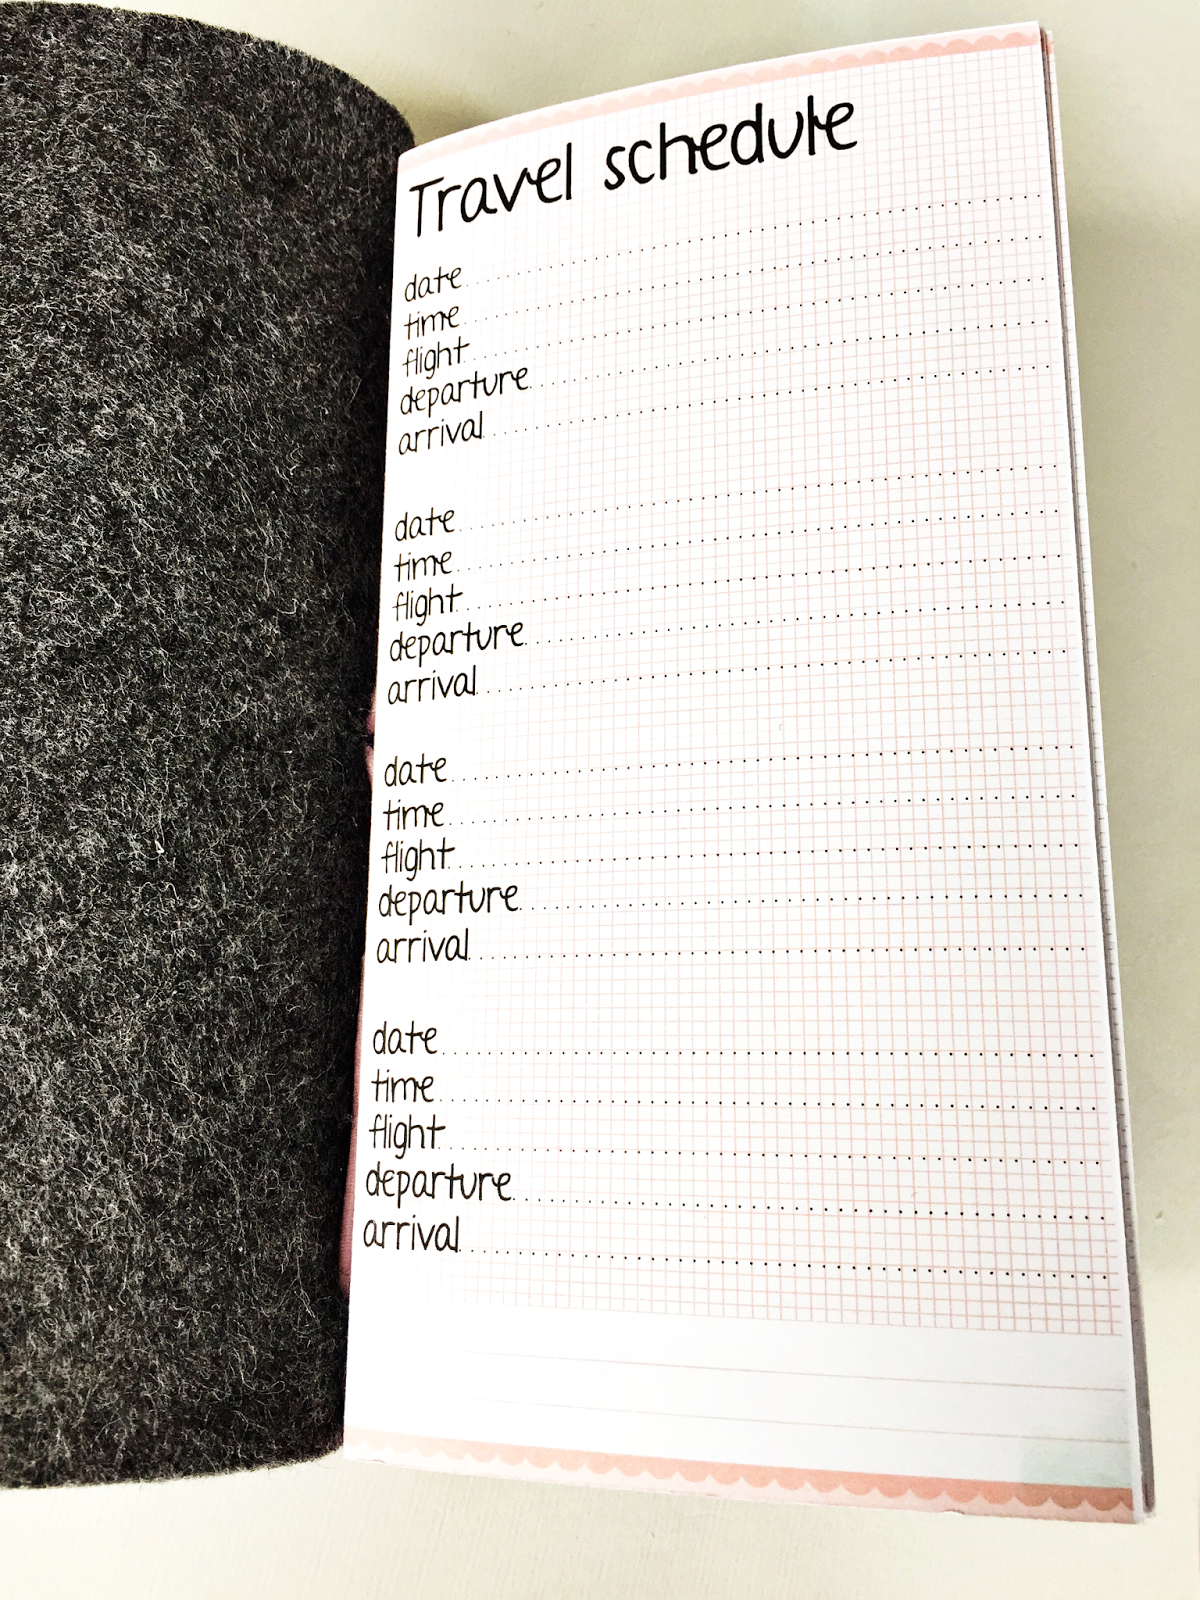 Travel schedule
date
time
flight
departure
arrival
date
time
flight
departure
arrival
date
time
flight
departure
arrival
date
time
flight
departure
arrival